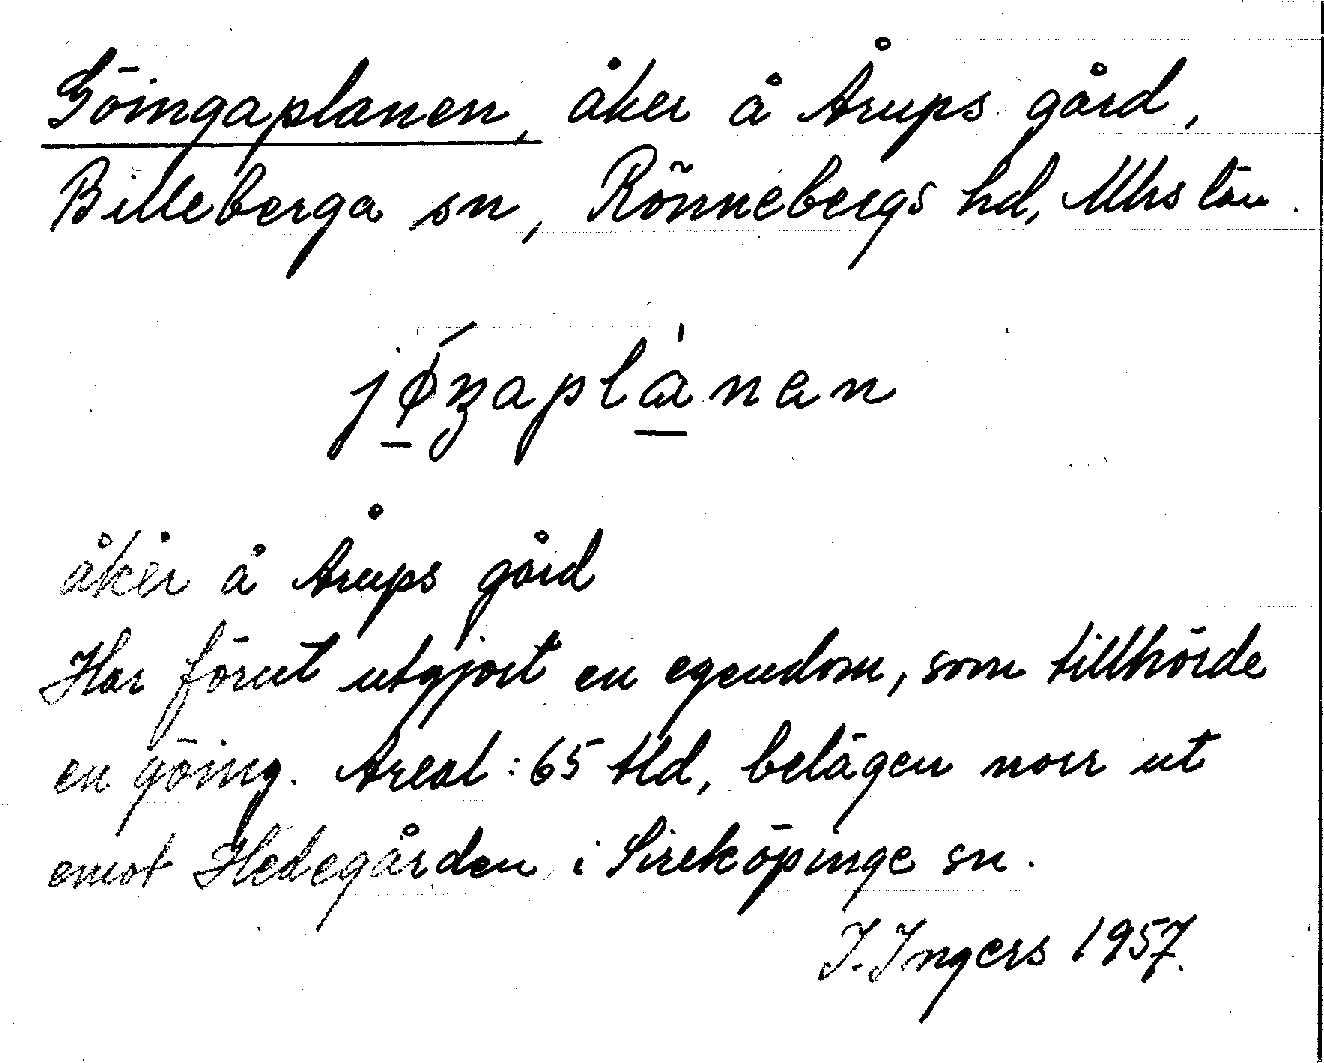 Göingaplanen, åker å Årups gård,
Billeberga sn, Rönnebergs hd, Mlhs län.
jøŋaplánen
åker å Årups gård
Har förut utgjort en egendom, som tillhörde
en göing. Areal: 65 tld, belägen norr ut
emot Hedegården i Sireköpinge sn.
I. Ingers 1957.